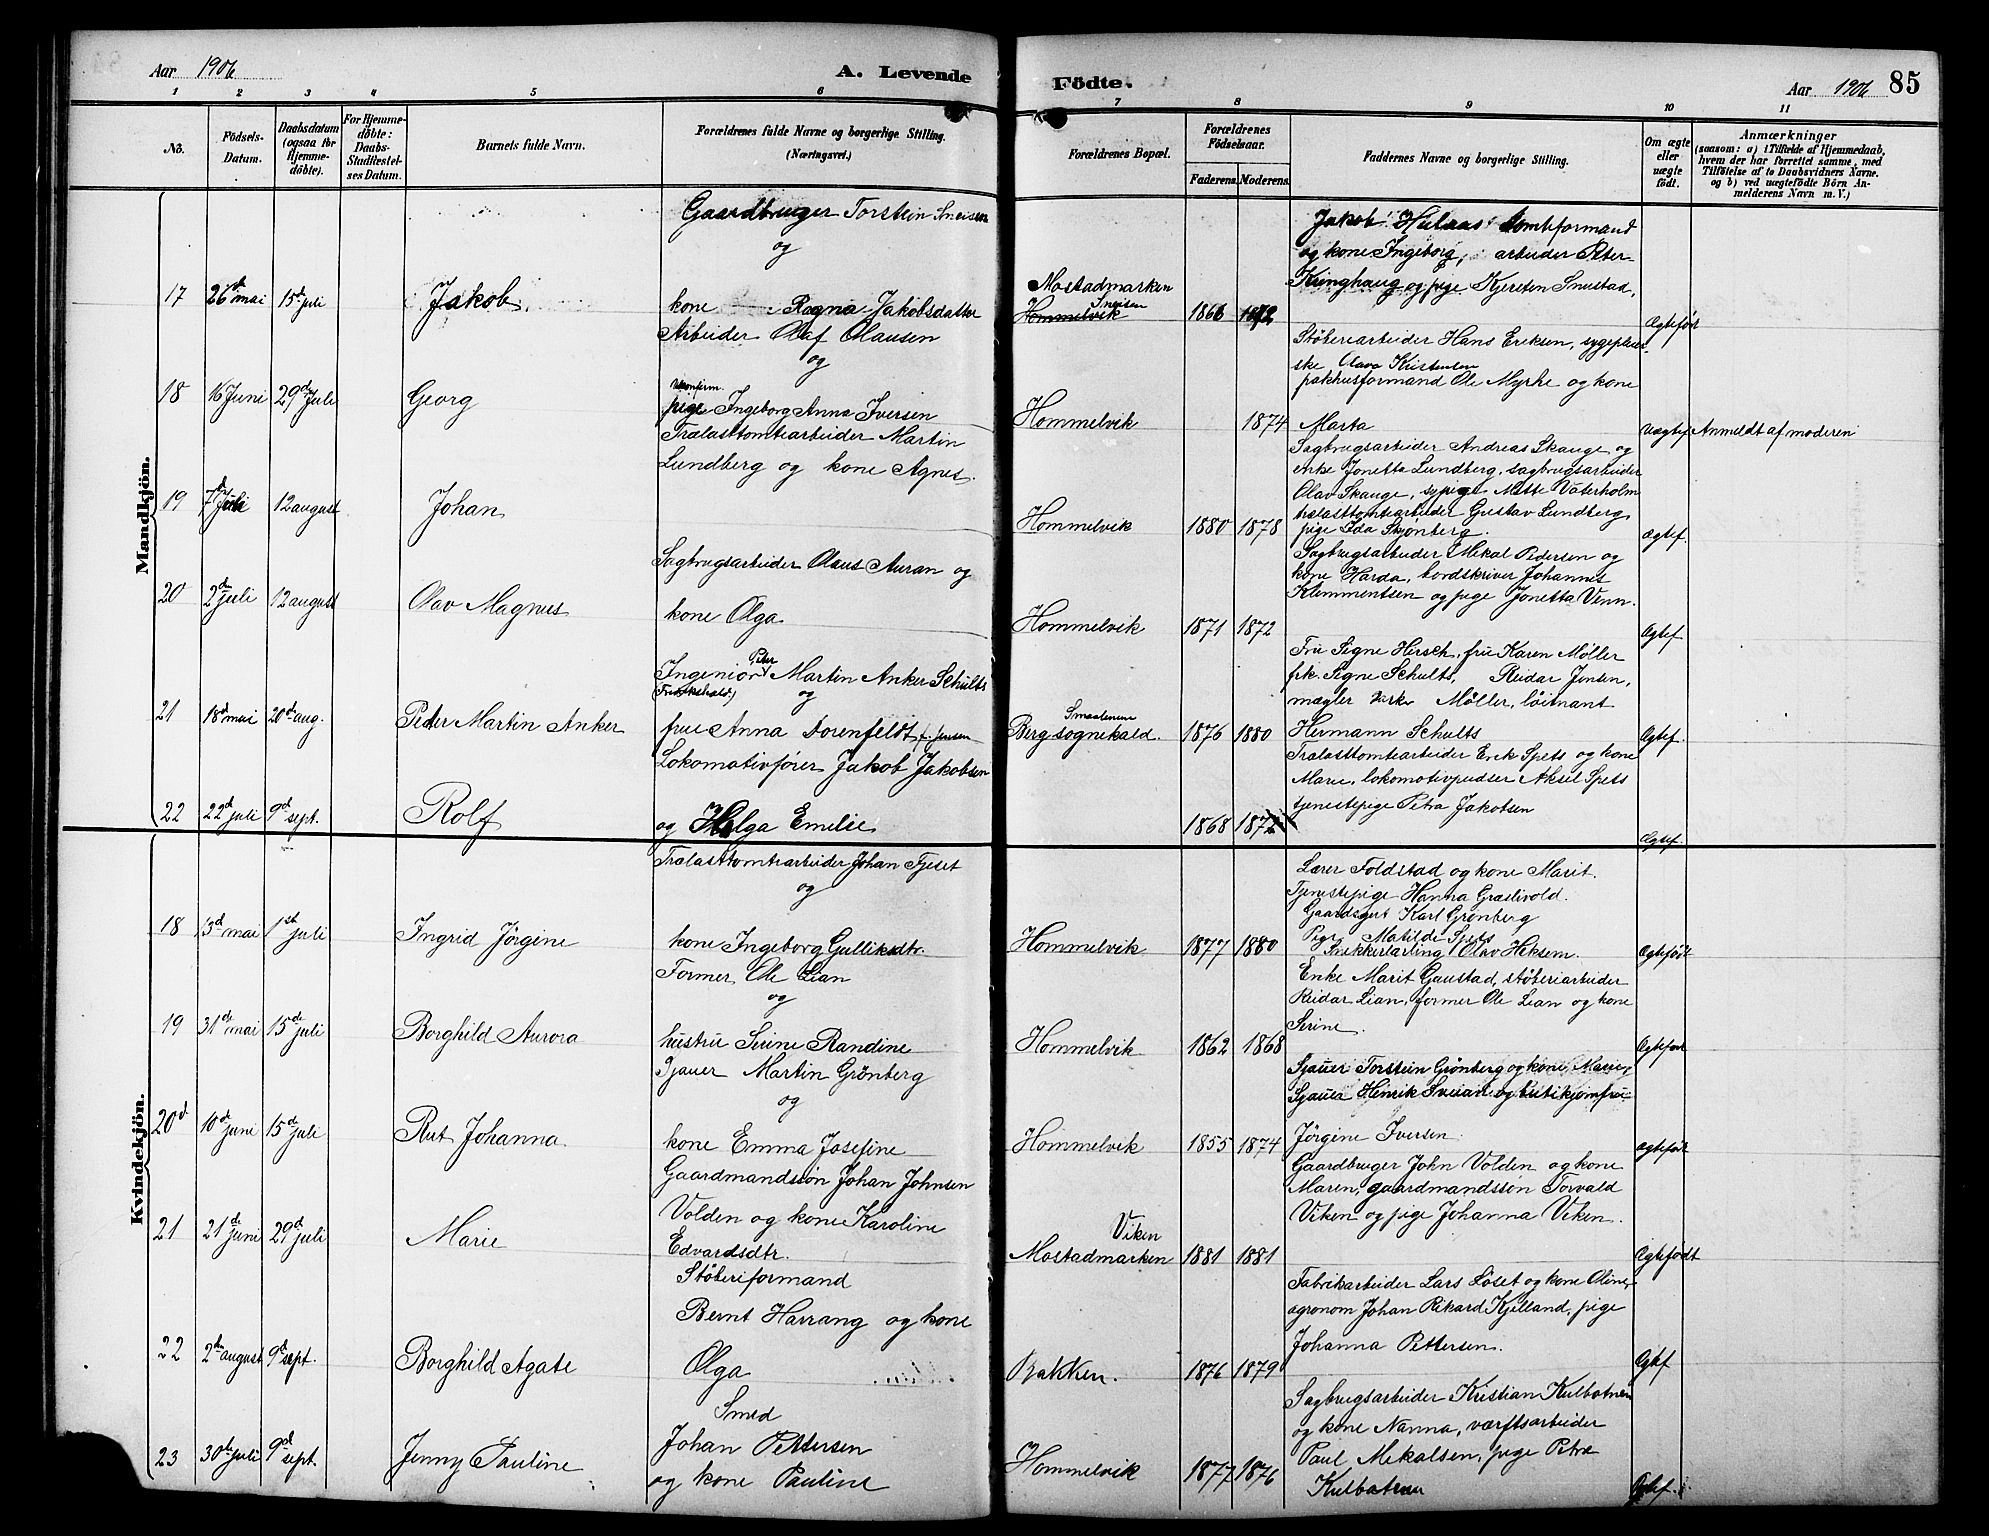 Aar 1906
A. Levende
Födte.
Aar 1906 85
1 2 3 4 5 6 7 8 9 10 11
No.
Födsels-
Datum.
Daabsdatum
(ogsaa for
Hjemme-
döbte).
For Hjemme-
döbte:
Daabs-
Stadfæstel-
ses Datum.
Barnets fulde Navn.
Forældrenes fulde Navne og borgerlige Stilling.
(Næringsvei.)
Forældrenes Bopæl.
Forældrenes
Födselsaar.
Faderens. Moderens.
Faddernes Navne og borgerlige Stilling.
Om ægte
eller
uægte
födt.
Anmærkninger
(saasom: a) i Tilfælde af Hjemmedaab,
hvem der har forrettet samme, med
Tilföielse af to Daabsvidners Navne.
og b) ved uægtefödte Börn An-
melderens Navn m. V.)
Mandkjön.
Gaardbruger Torstein Sneisen
og
17 26de mai 15d juli Jakob.
kone Ragna Jakobsdatter
Mostadmarken
Sneisen
Hommelvik 1866 1872
Jakob Hulaas tomteformand
og kone Ingeborg, arbeider Peter
Kringhaug og pige Kjersten Smustad.
Ægtefødt
Arbeider Olaf Olausen
og
18 16 Juni 29de Juli Georg
ukonfirm.
pige Ingeborg Anna Iversen
Hommelvik 1874
Støberiarbeider Hans Eriksen, sygepleier-
ske Olava Kristensen
pakhusformand Ole Myrhe og kone
Marta
Uægtef. Anmeldt af moderen
Trælasttomtearbeider Martin
Lundberg og kone Agnes.
19 7d Juli 12 august Johan
Hommelvik 1880 1878
Sagbrugsarbeider Andreas Skauge og
enke Jonetta Lundberg, sagbrugsarbeider
Olav Skauge, sypige Mette Vaterholm
trælasttomtearbeider Gustav Lundberg
pige Ida Skjønberg.
Ægtef.
Sagbrugsarbeider Olaus Auran og
20 2de juli 12 august Olav Magnus
kone Olga
Hommelvik 1871 1872
Sagbrugsarbeider Mikal Pedersen og
kone Harda, bordskriver Johannes
Klemmentsen og pige Jonetta Venn.
Ægtef.
Ingeniør Peter Martin Anker Schults
(Fredrikshald) og
21 18d mai 20de aug. Peder Martin Anker
frue Anna Dorenfeldt f. Jensen
Smaalenene
Berg sognekald. 1876 1880
Fru Signe Hersch, fru Karen Møller
frk. Signe Schults, Reidar Jensen,
mægler Møller, løitnant
Hermann Schults
Ægtef.
Lokomotivfører Jakob Jakobsen
22 22d juli 9d sept. Rolf
og Helga Emelie
1868 1872
Trælasttomtearbeider Erik Spets og kone
Marie, lokomotivpudser Aksel Spets
tjenestepige Petra Jakobsen
Ægtef.
Kvindekjön.
Trælasttomtearbeider Johan Fjeset
og
18 13d mai 1st juli Ingrid Jørgine
kone Ingeborg Gulliksdtr.
Hommelvik 1877 1880
Lærer Foldstad og kone Marit.
Tjenestepige Hanna Græslivold.
Gaardsgut Karl Grønberg
Pige Matilde Spets
Snekkerlærling Olav Heksem.
Ægtefødt
Former Ole Lian
og
19 31de mai 15de juli Borghild Aurora
hustru Sirine Randine
Hommelvik 1862 1868
Enke Marit Gaustad, støberiarbeider
Reidar Lian, former Ole Lian og kone
Serine.
Ægtefødt
Sjauer Martin Grönberg
og
20d 10d juni 15d juli Rut Johanna.
kone Emma Josefine
Hommelvik 1855 1874
Sjauer Torstein Grønberg og kone Marie,
Sjauer Henrik Sveian og butikjomfru
Jörgine Iversen.
Ægtefødt
Gaardmandssön Johan Johnsen
Volden og kone Karoline
21 21de juni 29d juli Marie
Edvardsdtr.
Viken
Mostadmarken 1881 1881
Gaardbruger John Volden og kone
Maren, gaardmandssön Torvald
Viken og pige Johanna Viken.
Ægtefødt
Støberiformand
Bernt Harrang og kone
22 2den august 9d sept. Borghild Agate
Olga
Bakken. 1876 1879
Fabrikarbeider Lars Löset og kone Oline,
agronom Johan Rikard Kjelland, pige
Johanna Pettersen.
Ægtef.
Smed
Johan Pettersen
23 30de juli 9d sept. Jenny Pauline
og kone Pauline
Hommelvik 1877 1876
Sagbrugsarbeider Kristian Kulbotnen
og kone Nanna, værftsarbeider
Paul Mekalsen, pige Petra
Kulbotnen
Ægtef.